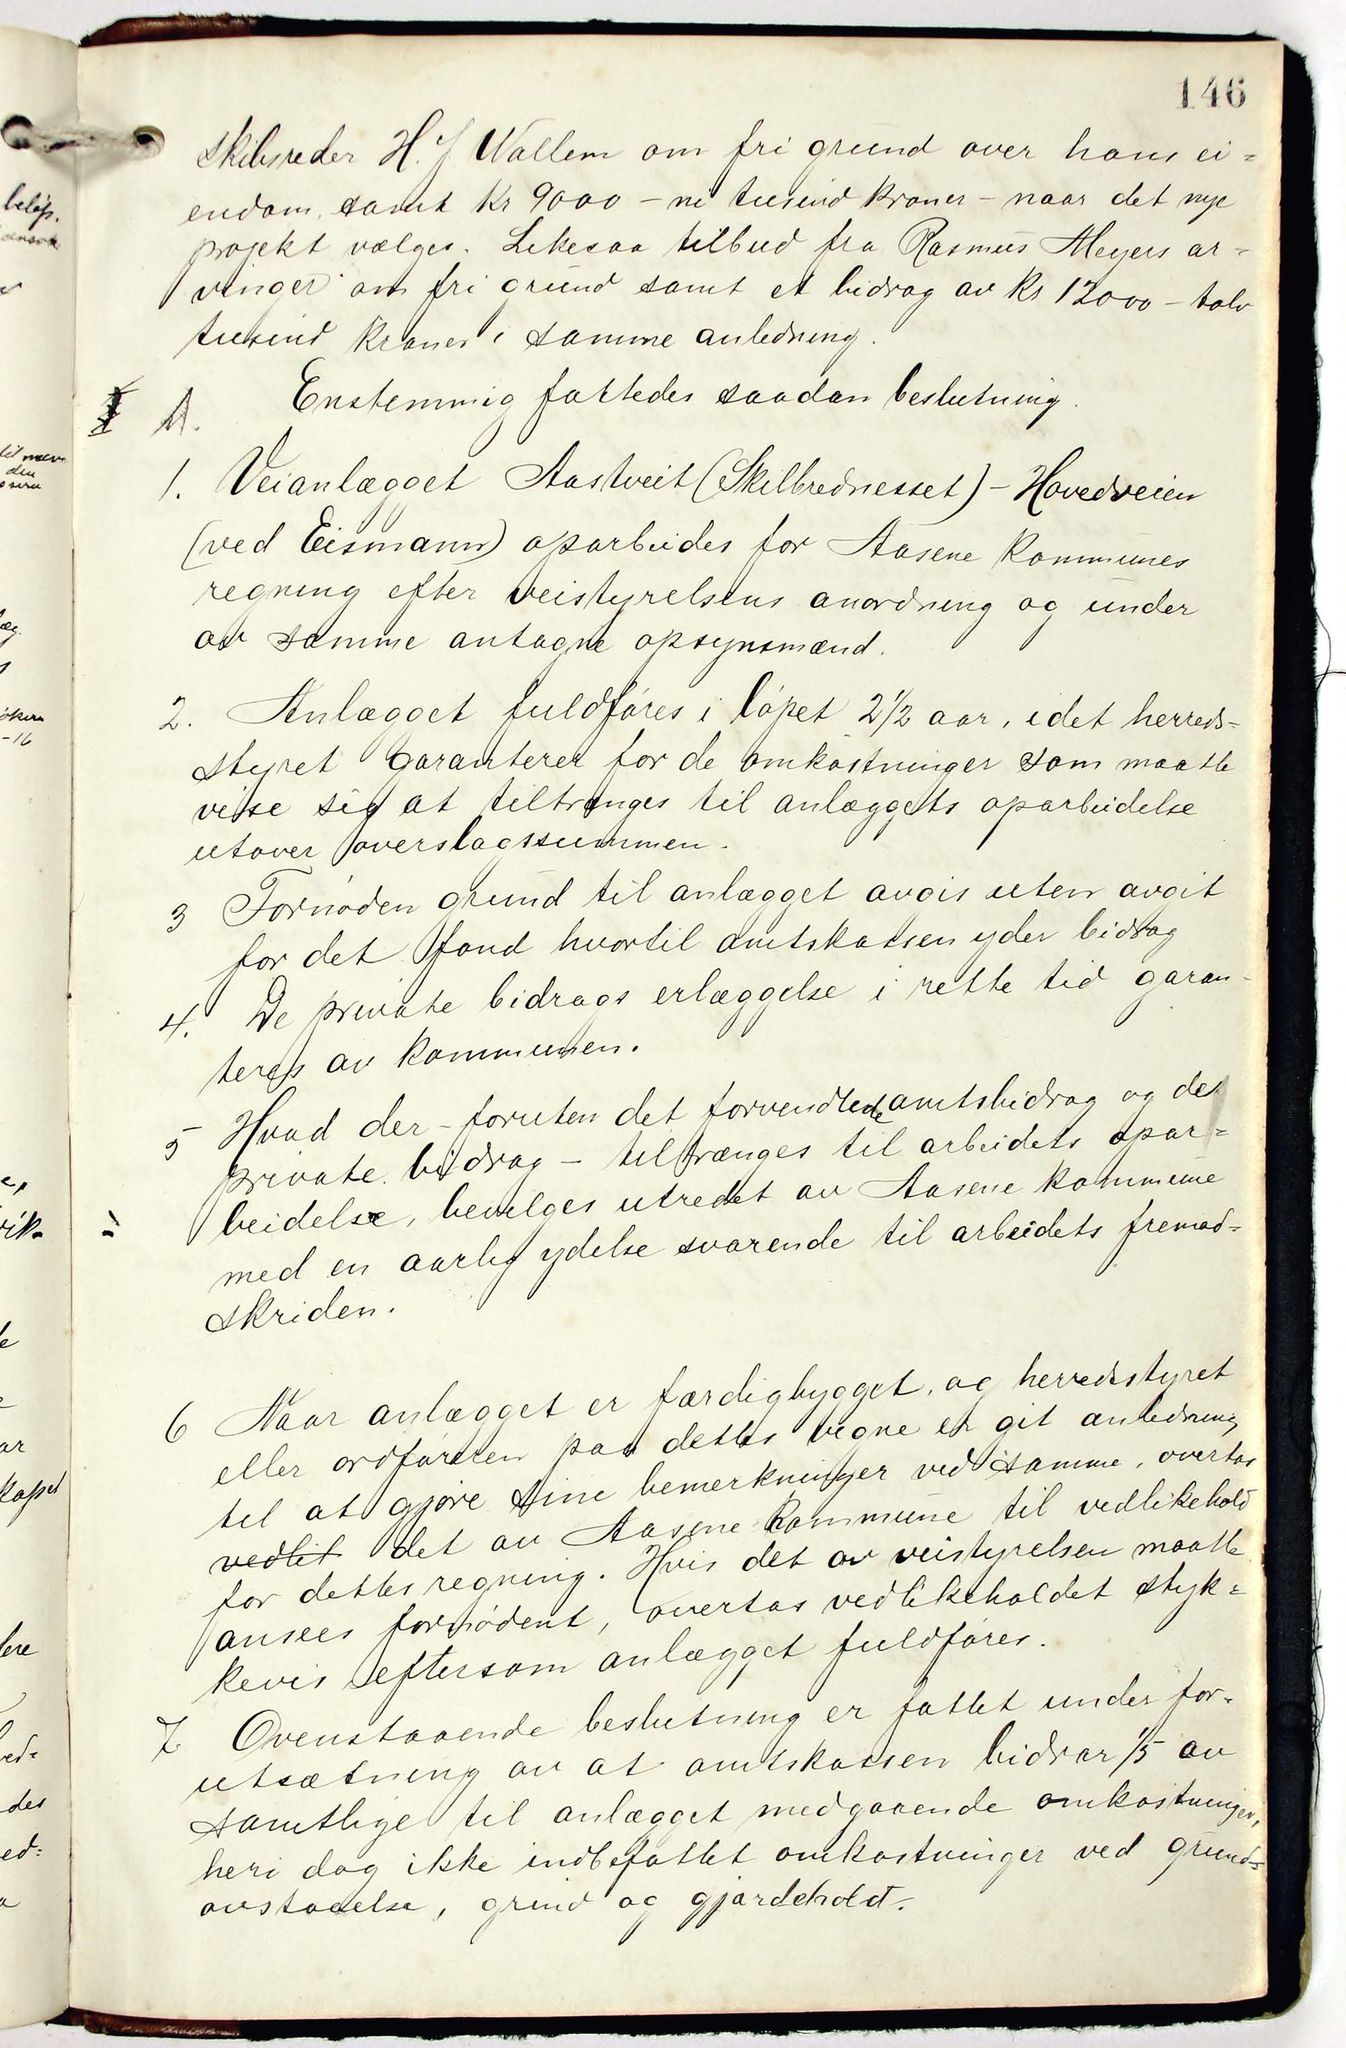 146
skibsreder H. J Wallem om fri grund over hans ei=
endom, samt Kr 9000 – ni tusind kroner – naar det nye
projekt vælges. Likesaa tilbud fra Rasmus Meyers ar-
vinger om fri grund samt et bidrag av Kr 12000 – tolv
tusind kroner i samme anledning.
Enstemmig fattedes saadan beslutning.
A.
1. Veianlægget Aastveit (Skilbrednesset) – Hovedveien
(ved Eismann) oparbeides for Aasene kommunes
regning efter veistyrelsens anordning og under
av samme antagne opsynsmænd.
2. Anlægget fuldføres i løpet 2 1/2 aar, idet herreds=
styret garanterer for de omkostninger som maatte
vise sig at tiltrænges til anlæggets oparbeidelse
utover overslagssummen.
3 Fornøden grund til anlægget avgis uten avgit
for det fond hvortil amtskassen yder bidrag
4. De private bidrags erlæggelse i rette tid garan-
teres av kommunen.
5 Hvad der – foruten det forventede amtsbidrag og det
private bidrag – tiltrænges til arbeidets opar=
beidelse, bevilges utredet av Aasene kommune
med en aarlig ydelse svarende til arbeidets fremad=
skriden.
6 Naar anlægget er færdigbygget, og herredsstyret
eller ordføreren paa dettes vegne er git anledning
til at gjøre sine bemerkninger ved samme, overtas
vedlit det av Aasene kommune til vedlikehold
for dettes regning. Hvis det av veistyrelsen maatte
ansees fornødent, overtas vedlikeholdet styk=
kevis eftersom anlægget fuldføres.
7. Ovenstaaende beslutning er fattet under for-
utsætning av at amtskassen bidrar 1/5 av
samtlige til anlægget medgaaende omkostninger,
heri dog ikke indbefattet omkostninger ved grund=
avstaaelse, grind og gjærdehold.